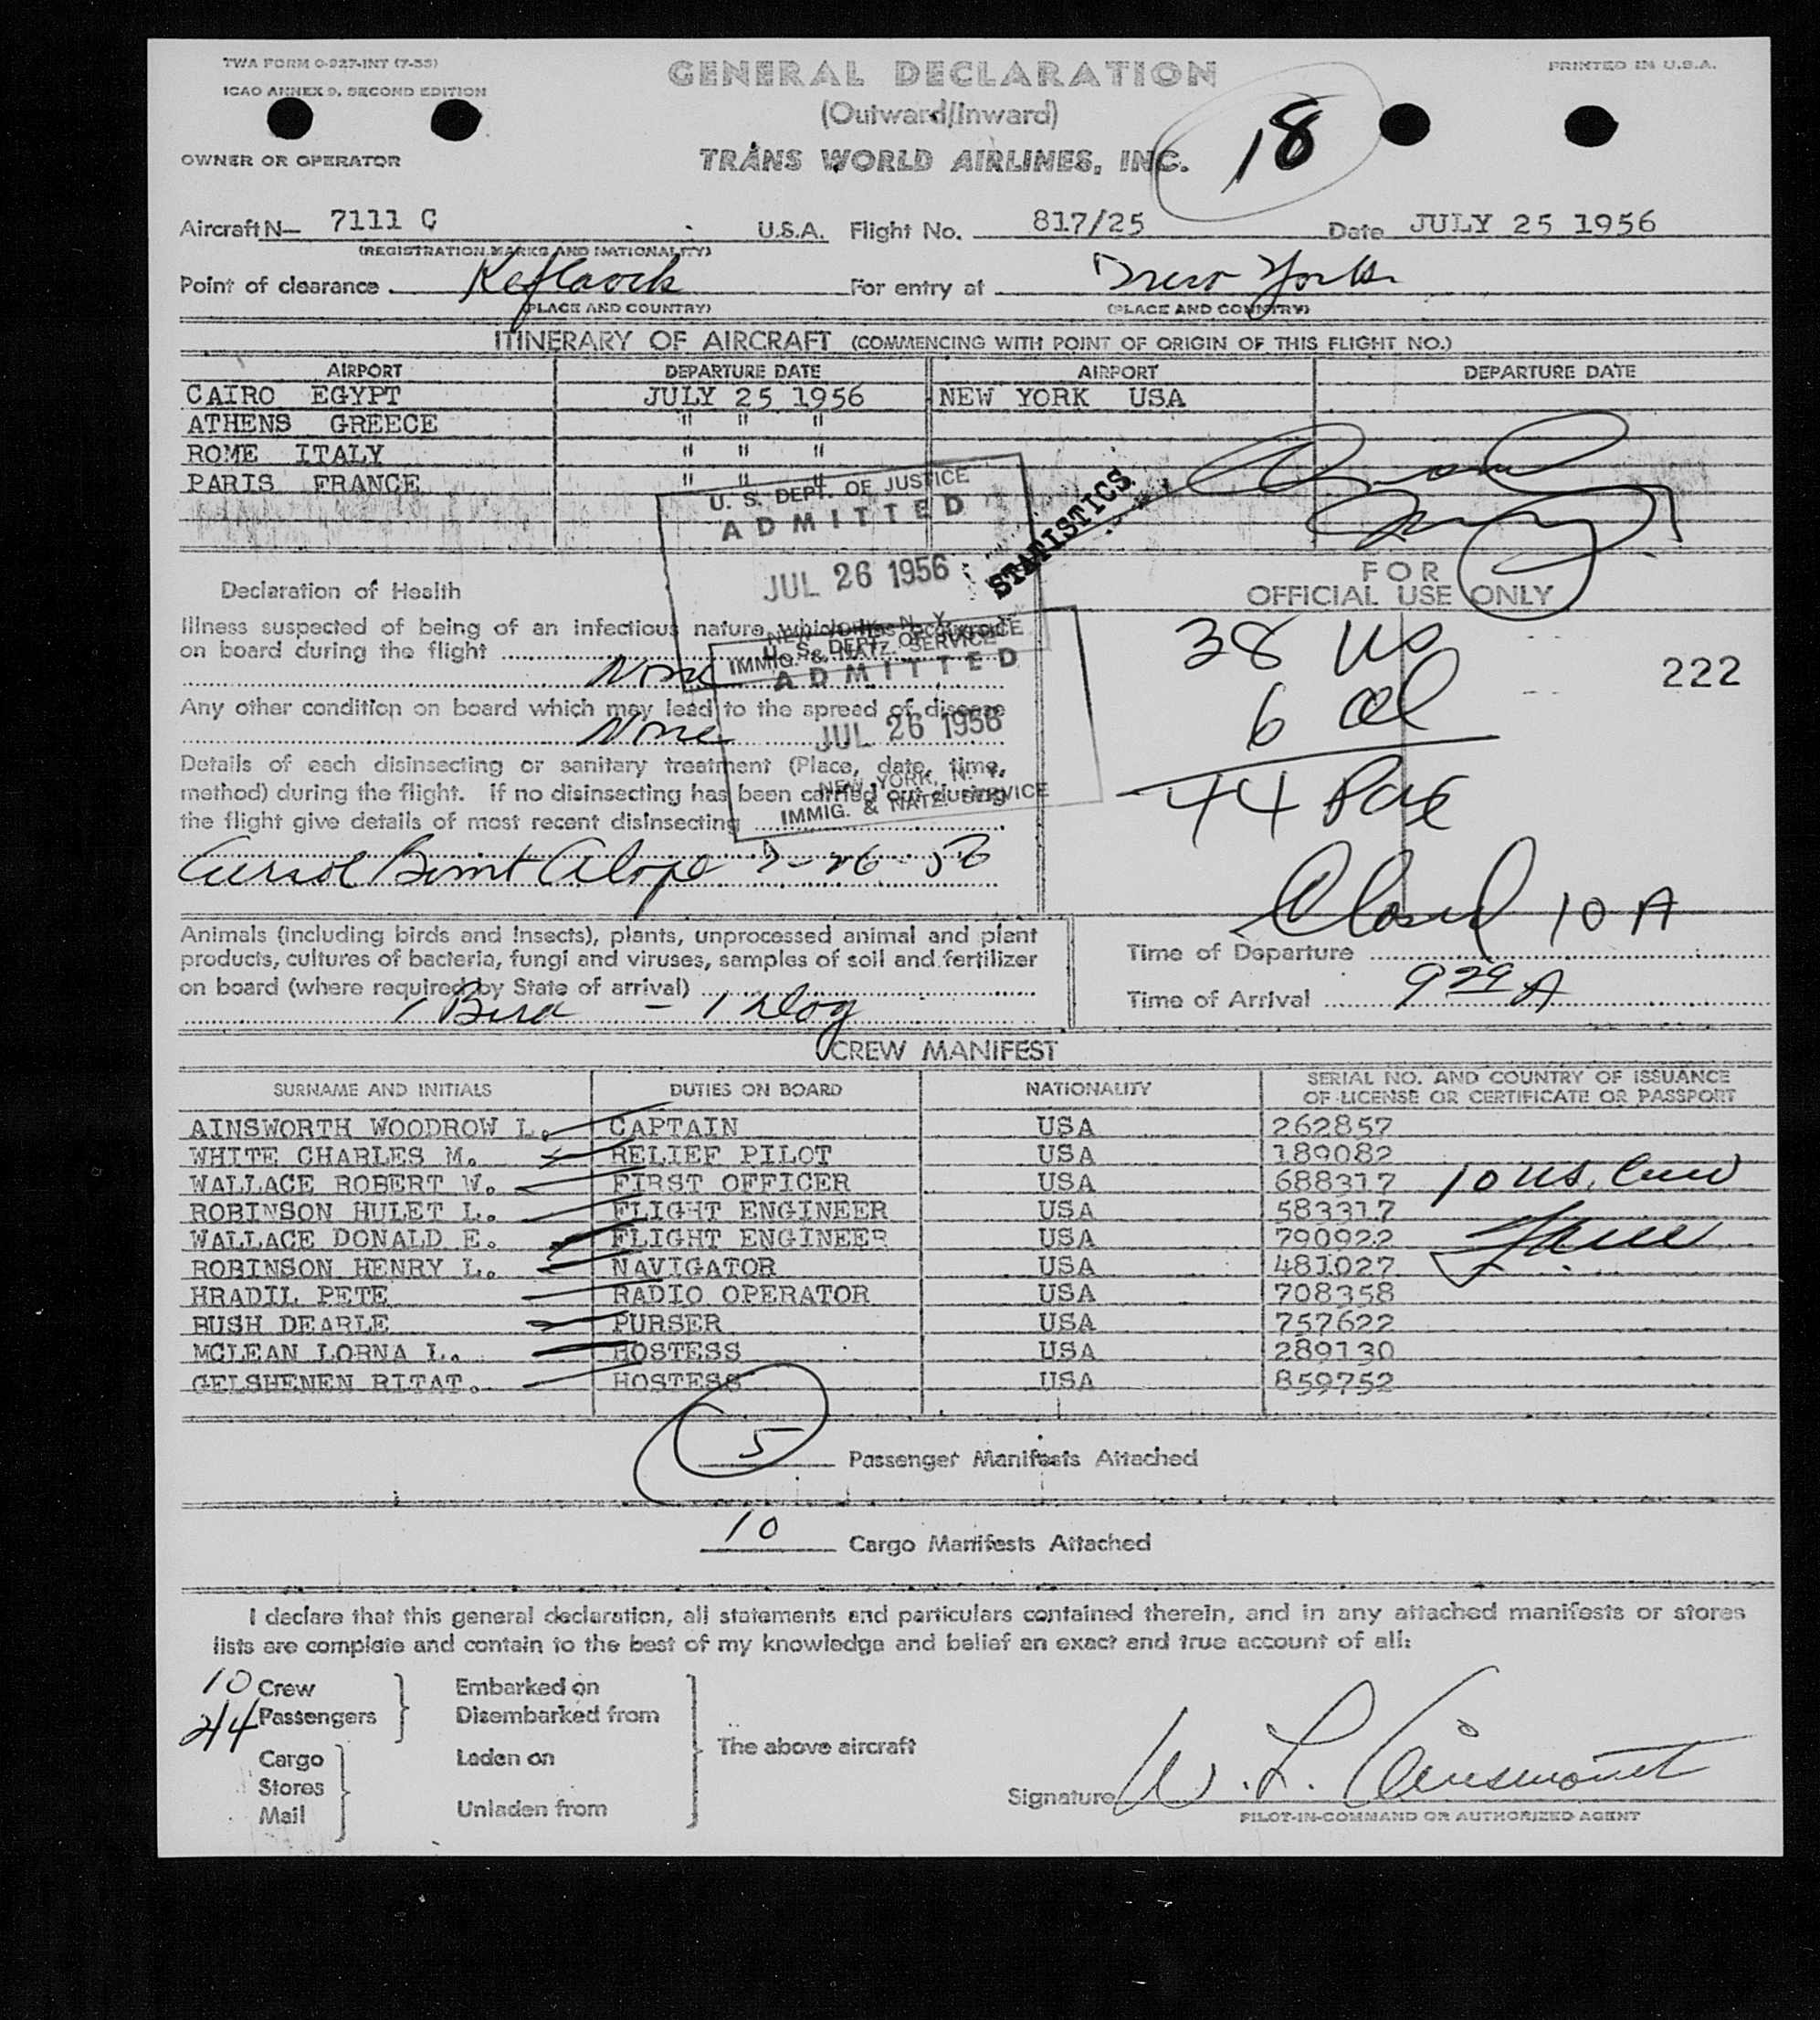 TWA FORM O-927-INT (7-55)
PRINTED IN U.S.A.
ICAO ANNEX 9, SECOND EDITION
GENERAL DECLARATION
(Outward/Inward)
18
OWNER OR OPERATOR
TRANS WORLD AIRLINES, INC.
Aircraft N— 7111 C U.S.A. Flight No. 817/25 Date JULY 25 1956
(REGISTRATION MARKS AND NATIONALITY)
Point of clearance For entry at New York
(PLACE AND COUNTRY) (PLACE AND COUNTRY)
ITINERARY OF AIRCRAFT (COMMENCING WITH POINT OF ORIGIN OF THIS FLIGHT NO.)
AIRPORT DEPARTURE DATE AIRPORT DEPARTURE DATE
CAIRO EGYPT JULY 25 1956 NEW YORK USA
ATHENS GREECE " " "
ROME ITALY " " "
PARIS FRANCE " " "
U. S. DEPT. OF JUSTICE
ADMITTED
JUL 26 1956
NEW YORK, N. Y.
IMMIG. & NATZ. SERVICE
STATISTICS
U. S. DEPT. OF JUSTICE
ADMITTED
JUL 26 1956
NEW YORK, N. Y.
IMMIG. & NATZ. SERVICE
Declaration of Health
Illness suspected of being of an infectious nature which has occurred
on board during the flight
None
Any other condition on board which may lead to the spread of disease
None
Details of each disinsecting or sanitary treatment (Place, date, time,
method) during the flight. If no disinsecting has been carried out during
the flight give details of most recent disinsecting
7-26-56
FOR
OFFICIAL USE ONLY
38 US
6 al
44 Pax
222
Closed 10 A
Animals (including birds and insects), plants, unprocessed animal and plant
products, cultures of bacteria, fungi and viruses, samples of soil and fertilizer
on board (where required by State of arrival)
1 Bird - 1 Dog
Time of Departure
Time of Arrival 9 29 A
CREW MANIFEST
SURNAME AND INITIALS DUTIES ON BOARD NATIONALITY SERIAL NO. AND COUNTRY OF ISSUANCE
OF LICENSE OR CERTIFICATE OR PASSPORT
AINSWORTH WOODROW L. CAPTAIN USA 262857
WHITE CHARLES M. RELIEF PILOT USA 189082
WALLACE ROBERT W. FIRST OFFICER USA 688317 10 US. Crew
ROBINSON HULET L. FLIGHT ENGINEER USA 583317
WALLACE DONALD E. FLIGHT ENGINEER USA 790922
ROBINSON HENRY L. NAVIGATOR USA 481027
HRADIL PETE RADIO OPERATOR USA 708358
BUSH DEARLE PURSER USA 757622
MCLEAN LORNA L. HOSTESS USA 289130
GELSHENEN RITAT. HOSTESS USA 859752
5 Passenger Manifests Attached
10 Cargo Manifests Attached
I declare that this general declaration, all statements and particulars contained therein, and in any attached manifests or stores
lists are complete and contain to the best of my knowledge and belief an exact and true account of all:
10 Crew Embarked on
44 Passengers Disembarked from
The above aircraft
Cargo Laden on
Stores
Mail Unladen from
Signature W. L. Ainsworth
PILOT-IN-COMMAND OR AUTHORIZED AGENT